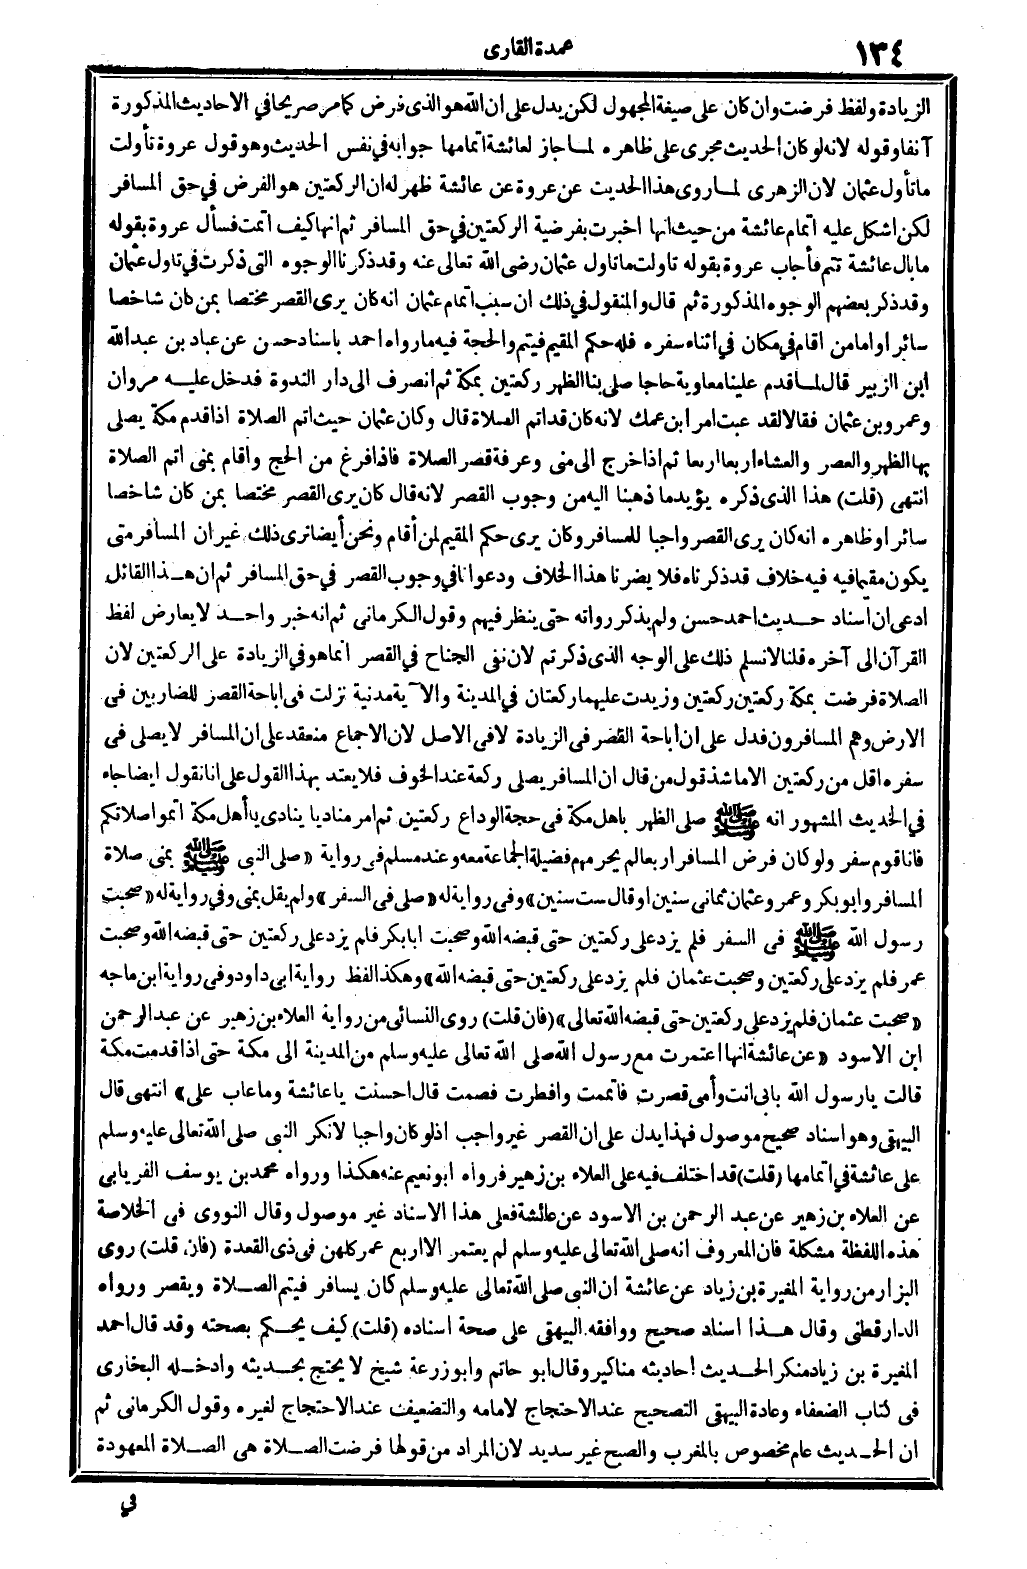 ١٣٤
عمدة القارى
الزيادة ولفظ فرضت وان كان على صيغة المجهول لكن يدل على ان الله هو الذى فرض كما مر صريحا في الاحاديث المذكورة
آنفا وقوله لانه لو كان الحديث مجرى على ظاهره لما جاز لعائشة اتمامها جوابه في نفس الحديث وهو قول عروة تأولت
ما تأول عثمان لان الزهرى لما روى هذا الحديث عن عروة عن عائشة ظهر له ان الركعتين هو الفرض في حق المسافر
لكن اشكل عليه اتمام عائشة من حيث انها اخبرت بفرضية الركعتين في حق المسافر ثم انها كيف اتمت فسأل عروة بقوله
ما بال عائشة تتم فأجاب عروة بقوله تاولت ما تاول عثمان رضى الله تعالى عنه وقد ذكرنا الوجوه التى ذكرت في تاول عثمان
وقد ذكر بعضهم الوجوه المذكورة ثم قال والمنقول في ذلك ان سبب اتمام عثمان انه كان يرى القصر مختصا بمن كان شاخصا
سائرا واما من اقام في مكان في اثناء سفره فله حكم المقيم فيتم والحجة فيه ما رواه احمد باسناد حسن عن عباد بن عبد الله
ابن الزبير قال لما قدم علينا معاوية حاجا صلى بنا الظهر ركعتين بمكة ثم انصرف الى دار الندوة فدخل عليه مروان
وعمرو بن عثمان فقالا لقد عبت امر ابن عمك لانه كان قد اتم الصلاة قال وكان عثمان حيث اتم الصلاة اذا قدم مكة يصلى
بها الظهر والعصر والعشاء اربعا اربعا ثم اذا خرج الى منى وعرفة قصر الصلاة فاذا فرغ من الحج واقام بمنى اتم الصلاة
انتهى (قلت) هذا الذى ذكره يؤيد ما ذهبنا اليه من وجوب القصر لانه قال كان يرى القصر مختصا بمن كان شاخصا
سائرا وظاهره انه كان يرى القصر واجبا للمسافر وكان يرى حكم المقيم لمن أقام ونحن أيضا نرى ذلك غير ان المسافر متى
يكون مقيما فيه فيه خلاف قد ذكرناه فلا يضرنا هذا الخلاف ودعوانا في وجوب القصر في حق المسافر ثم ان هذا القائل
ادعى ان اسناد حديث احمد حسن ولم يذكر رواته حتى ينظر فيهم وقول الكرمانى ثم انه خبر واحد لا يعارض لفظ
القرآن الى آخره قلنا لا نسلم ذلك على الوجه الذى ذكرتم لان نفى الجناح في القصر انما هو في الزيادة على الركعتين لان
الصلاة فرضت بمكة ركعتين ركعتين وزيدت عليهما ركعتان في المدينة والآية مدنية نزلت فى اباحة القصر للضاربين فى
الارض وهم المسافرون فدل على ان اباحة القصر فى الزيادة لا فى الاصل لان الاجماع منعقد على ان المسافر لا يصلى فى
سفره اقل من ركعتين الا ما شذ قول من قال ان المسافر يصلى ركعة عند الخوف فلا يعتد بهذا القول على انا نقول ايضا جاء
في الحديث المشهور انه ﷺ صلى الظهر باهل مكة فى حجة الوداع ركعتين ثم امر مناديا ينادى يا أهل مكة اتموا صلاتكم
فانا قوم سفر ولو كان فرض المسافر اربعا لم يحرمهم فضيلة الجماعة معه وعند مسلم فى رواية «صلى النبى ﷺ بمنى صلاة
المسافر وابو بكر وعمر وعثمان ثمانى سنين او قال ست سنين» وفى رواية له «صلى فى السفر» ولم يقل بمنى وفي رواية له «صحبت
رسول الله ﷺ فى السفر فلم يزد على ركعتين حتى قبضه الله وصحبت ابا بكر فلم يزد على ركعتين حتى قبضه الله وصحبت
عمر فلم يزد على ركعتين وصحبت عثمان فلم يزد على ركعتين حتى قبضه الله» وهكذا لفظ رواية ابى داود وفى رواية ابن ماجه
«صحبت عثمان فلم يزد على ركعتين حتى قبضه الله تعالى» (فان قلت) روى النسائى من رواية العلاء بن زهير عن عبد الرحمن
ابن الاسود «عن عائشة انها اعتمرت مع رسول الله صلى الله تعالى عليه وسلم من المدينة الى مكة حتى اذا قدمت مكة
قالت يا رسول الله بابى انت وأمى قصرت فاتممت وافطرت فصمت قال احسنت يا عائشة وما عاب على» انتهى قال
البيهقى وهو اسناد صحيح موصول فهذا يدل على ان القصر غير واجب اذ لو كان واجبا لانكر النبى صلى الله تعالى عليه وسلم
على عائشة في اتمامها (قلت) قد اختلف فيه على العلاء بن زهير فرواه ابو نعيم عنه هكذا ورواه محمد بن يوسف الفريابى
عن العلاء بن زهير عن عبد الرحمن بن الاسود عن عائشة فعلى هذا الاسناد غير موصول وقال النووى فى الخلاصة
هذه اللفظة مشكلة فان المعروف انه صلى الله تعالى عليه وسلم لم يعتمر الا اربع عمر كلهن فى ذى القعدة (فان قلت) روى
البزار من رواية المغيرة بن زياد عن عائشة ان النبى صلى الله تعالى عليه وسلم كان يسافر فيتم الصلاة ويقصر ورواه
الدارقطنى وقال هذا اسناد صحيح ووافقه البيهقى على صحة اسناده (قلت) كيف يحكم بصحته وقد قال احمد
المغيرة بن زياد منكر الحديث أحاديثه مناكير وقال ابو حاتم وابو زرعة شيخ لا يحتج بحديثه وادخله البخارى
فى كتاب الضعفاء وعادة البيهقى التصحيح عند الاحتجاج لامامه والتضعيف عند الاحتجاج لغيره وقول الكرمانى ثم
ان الحديث عام مخصوص بالمغرب والصبح غير سديد لان المراد من قولها فرضت الصلاة هى الصلاة المعهودة
في